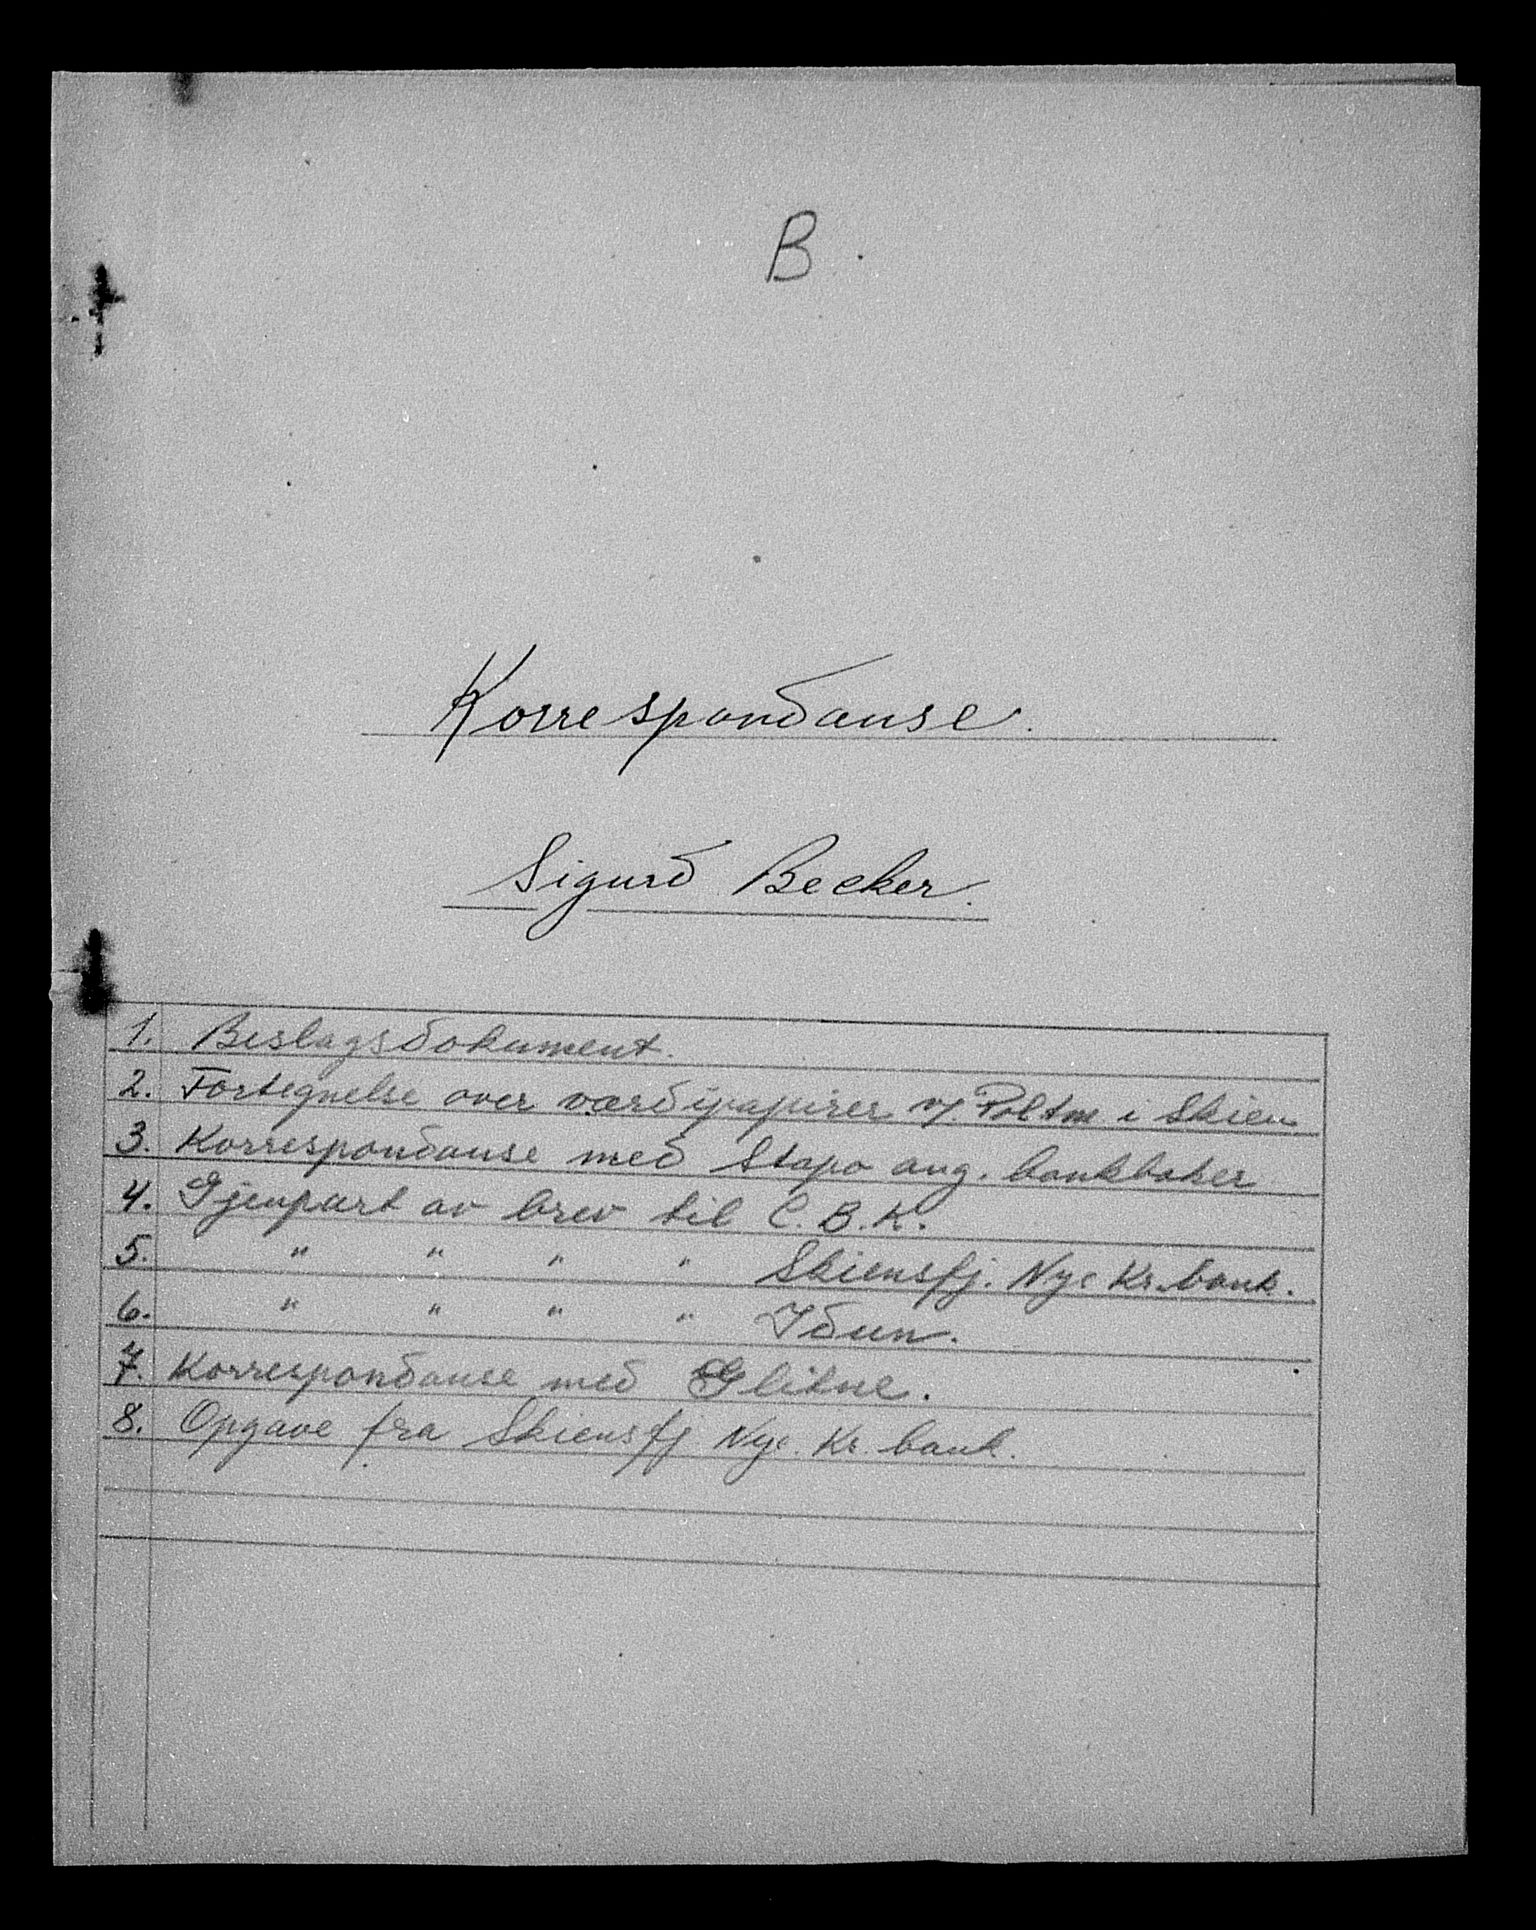 B.
Korrespondanse.
Sigurd Becker.
1. Beslagsdokument.
2. Fortegnelse over værdipapirer v/ Poltm. i Skien
3. Korrespondanse med Stapo ang. bankbøker
4. Gjenpart av brev til C. B. K.
5. " " " " Skiensfj. Nye Kr. bank.
6. " " " " Idun.
7. Korrespondanse med Glitne.
8. Opgave fra Skiensfj Nye. Kr. bank.